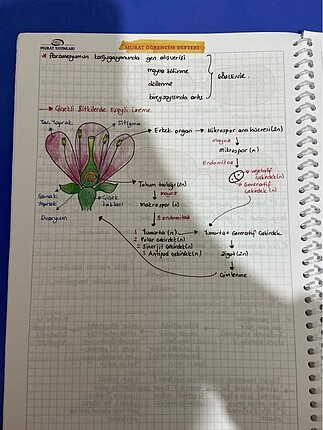 MURAT YAYINLARI
MURAT ÖĞRENCİM DEFTERİ
* Parameyumun konjugasyonunda gen alışverişi
mayoz bölünme
döllenme
birey sayısında artış
GÖZLENİR.
Çiçekli Bitkilerde Eşeyli Üreme
Taç Yaprak
Stigma
Erkek organ → Mikrospor ana hücresi (2n)
mayoz
Mikrospor (n)
Endomitoz
vejetatif çekirdek (n)
Generatif çekirdek (n)
Tohum taslağı (2n)
mayoz
Makrospor (n)
3 endomitoz
Çanak Yaprak
Çiçek tablası
Ovaryum
1 Yumurta (n) → Yumurta + Generatif Çekirdek
2 Polar çekirdek (n)
2 Sinerjit Çekirdek (n)
3 Antipod çekirdek (n)
Zigot (2n)
Çimlenme